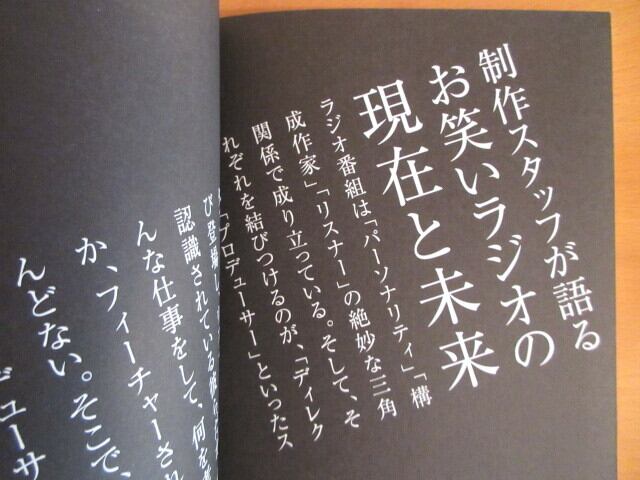 制作スタッフが語る
お笑いラジオの
現在と未来
ラジオ番組は「パーソナリティ」「構
成作家」「リスナー」の絶妙な三角
関係で成り立っている。そして、そ
れぞれを結びつけるのが、「ディレク
「プロデューサー」といったス
び登場し
認識されている
んな仕事をして、何を
か、フィーチャーされ
んどない。そこで、
デューサ